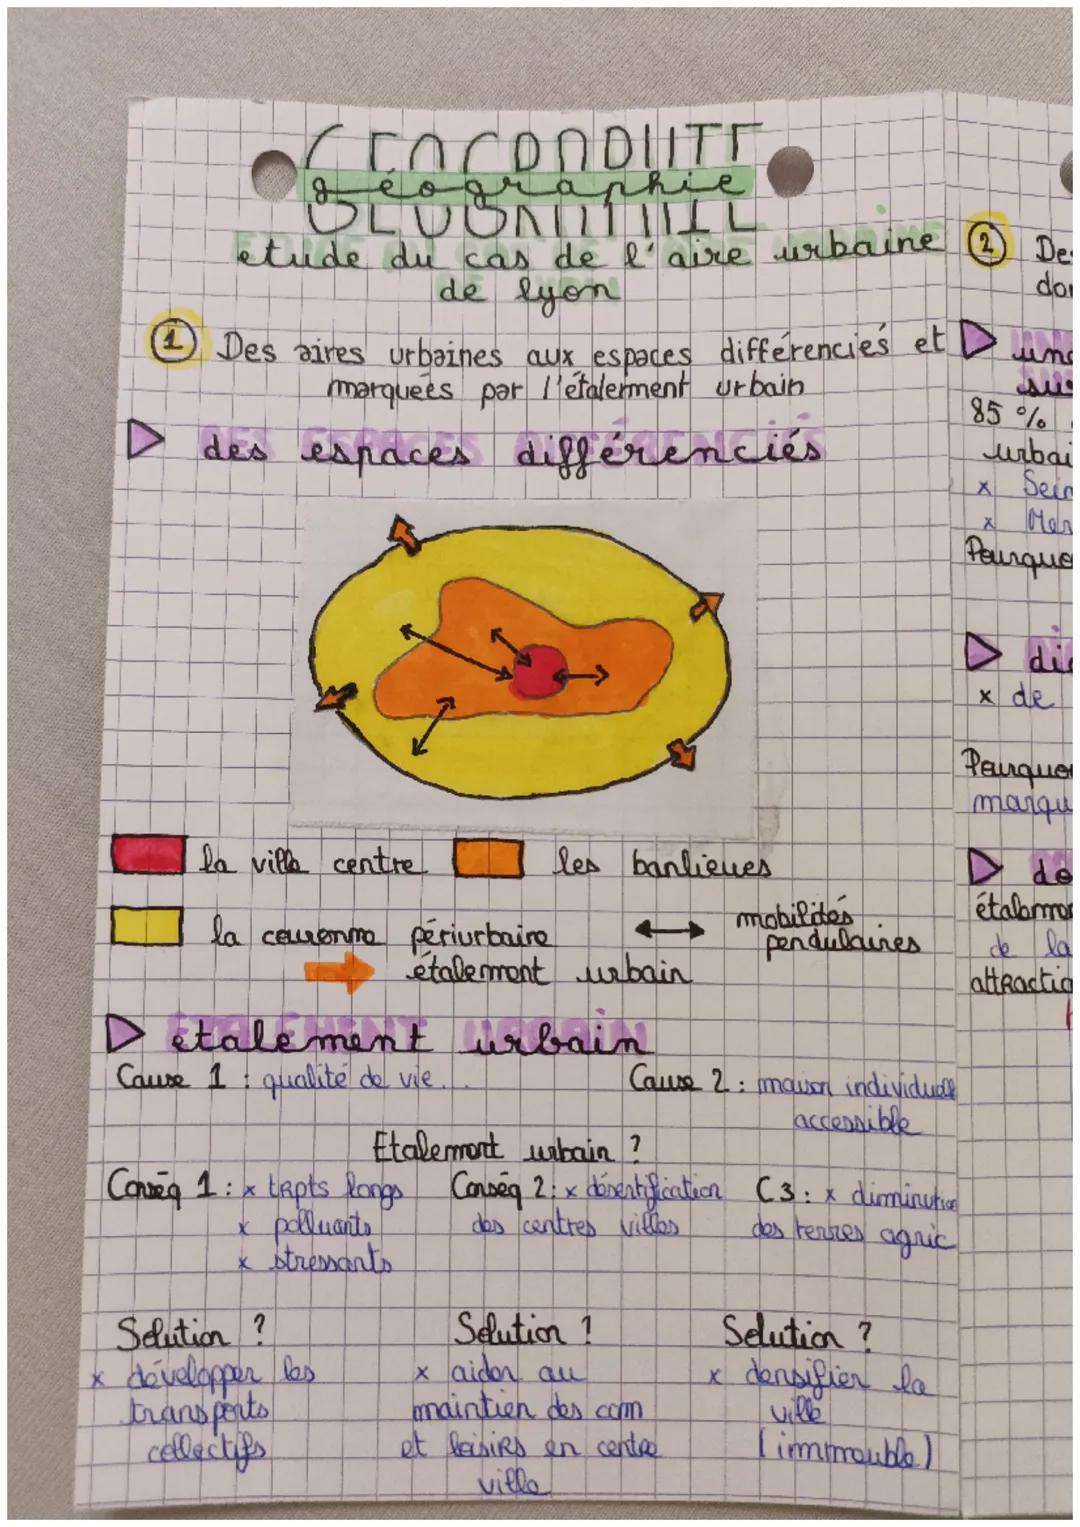 géographie
etude du cas de l'aire urbaine
de lyon
1 Des aires urbaines aux espaces différenciés et
marquées par l'étalement urbain
des espaces différenciés
la ville centre
les banlieues
la couronne périurbaine
mobilités
pendulaires
étalement urbain
etalement urbain
Cause 1 : qualité de vie...
Cause 2 : maison individuelle
accessible
Etalement urbain ?
Conséq 1 : x trpts longs
x polluants
x stressants
Conséq 2 : x désentification
des centres villes
C3 : x diminution
des terres agric
Solution ?
x développer les
transports
collectifs
Solution ?
x aider au
maintien des com
et loisirs en centre
ville
Solution ?
x densifier la
ville
(immeuble)
2 De
don
une
sur
85 %
urbai
x Sein
x Mer
Pourquo
x de
Pourquo
marqu
de
étalemen
de la
attractio